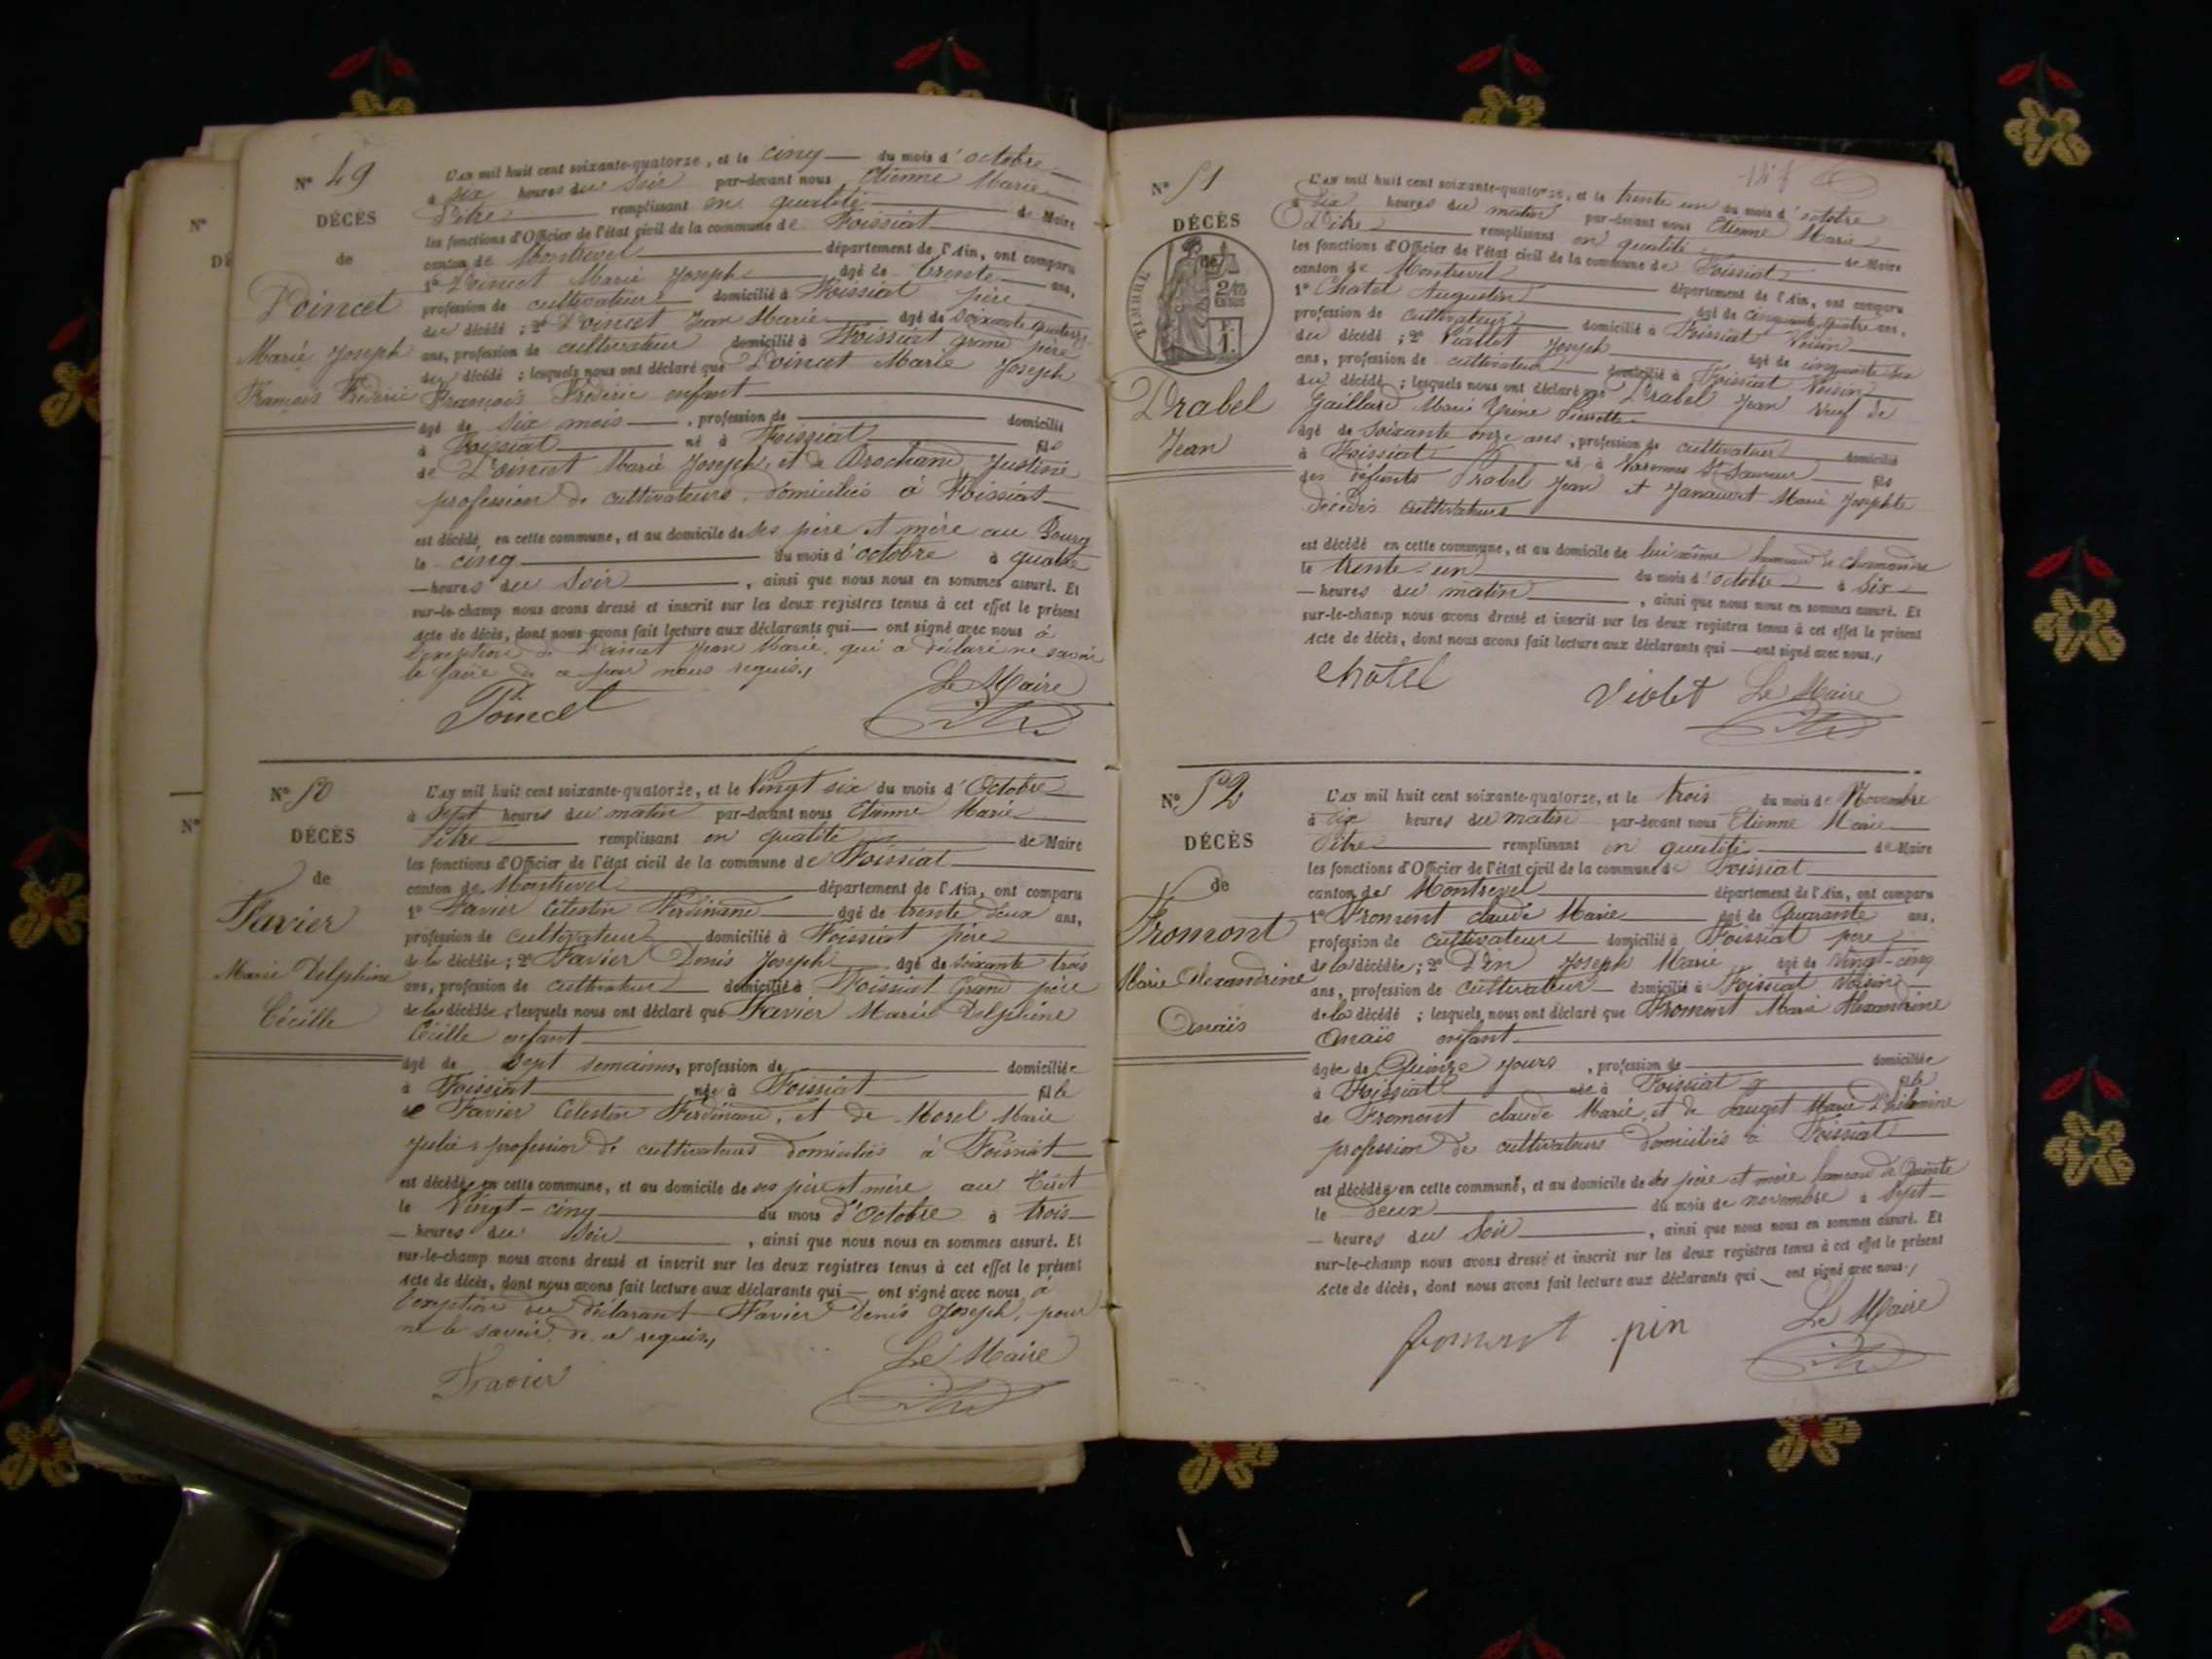 N° 49
DÉCÈS
de
Poincet
Marie Joseph
François Frédéric
L'AN mil huit cent soixante-quatorze, et le cinq du mois d'octobre
à six heures du soir par-devant nous Etienne Marie
Pitre remplissant en qualité de Maire
les fonctions d'Officier de l'état civil de la commune de Foissiat
canton de Montrevel département de l'Ain, ont comparu
1° Poincet Marie Joseph âgé de trente ans,
profession de cultivateur domicilié à Foissiat père
du décédé ; 2° Poincet Jean Marie âgé de soixante quatorze
ans, profession de cultivateur domicilié à Foissiat grand père
du décédé ; lesquels nous ont déclaré que Poincet Marie Joseph
François Frédéric enfant
âgé de six mois , profession de domicilié
à Foissiat né à Foissiat fils
de Poincet Marie Joseph, et de Brochand Justine
profession de cultivateurs domiciliés à Foissiat
est décédé en cette commune, et au domicile de ses père et mère au Bourg
le cinq du mois d'octobre à quatre
heures du soir , ainsi que nous nous en sommes assuré. Et
sur-le-champ nous avons dressé et inscrit sur les deux registres tenus à cet effet le présent
acte de décès, dont nous avons fait lecture aux déclarants qui ont signé avec nous à
l'exception de Poincet Jean Marie qui a déclaré ne savoir
le faire de ce par nous requis.
Poincet
Le Maire
N° 50
DÉCÈS
de
Favier
Marie Delphine
Cécille
L'AN mil huit cent soixante-quatorze, et le Vingt six du mois d'Octobre
à sept heures du matin par-devant nous Etienne Marie
Pitre remplissant en qualité de Maire
les fonctions d'Officier de l'état civil de la commune de Foissiat
canton de Montrevel département de l'Ain, ont comparu
1° Favier Célestin Ferdinand âgé de trente deux ans,
profession de cultivateur domicilié à Foissiat père
de la décédée ; 2° Favier Denis Joseph âgé de soixante trois
ans, profession de cultivateur domicilié à Foissiat grand père
de la décédée ; lesquels nous ont déclaré que Favier Marie Delphine
Cécille enfant
âgé de sept semaines, profession de domiciliée
à Foissiat née à Foissiat fille
de Favier Célestin Ferdinand, et de Morel Marie
Julie profession de cultivateurs domiciliés à Foissiat
est décédée en cette commune, et au domicile de ses père et mère au
le Vingt-cinq du mois d'Octobre à trois
heures du soir , ainsi que nous nous en sommes assuré. Et
sur-le-champ nous avons dressé et inscrit sur les deux registres tenus à cet effet le présent
acte de décès, dont nous avons fait lecture aux déclarants qui ont signé avec nous à
l'exception du déclarant Favier Denis Joseph, pour
ne le savoir de ce requis.
Favier
Le Maire
N° 51
DÉCÈS
TIMBRE
Prabel
Jean
L'AN mil huit cent soixante-quatorze, et le trente un du mois d'octobre
à dix heures du matin par-devant nous Etienne Marie
Pitre remplissant en qualité de Maire
les fonctions d'Officier de l'état civil de la commune de Foissiat
canton de Montrevel département de l'Ain, ont comparu
1° Chatel Augustin âgé de cinquante quatre ans,
profession de cultivateur domicilié à Foissiat Voisin
du décédé ; 2° Viallet Joseph âgé de cinquante six
ans, profession de cultivateur domicilié à Foissiat Voisin
du décédé ; lesquels nous ont déclaré que Prabel Jean veuf de
Gaillard Marie Pierrette
âgé de soixante onze ans , profession de cultivateur domicilié
à Foissiat né à Varennes St Sauveur fils
des défunts Prabel Jean et Marie Josephte
décédés cultivateurs
est décédé en cette commune, et au domicile de lui même hameau de
le trente-un du mois d'octobre à six
heures du matin , ainsi que nous nous en sommes assuré. Et
sur-le-champ nous avons dressé et inscrit sur les deux registres tenus à cet effet le présent
acte de décès, dont nous avons fait lecture aux déclarants qui ont signé avec nous.
Chatel Violet Le Maire
N° 52
DÉCÈS
de
Fromont
Marie Alexandrine
Anaïs
L'AN mil huit cent soixante-quatorze, et le trois du mois de Novembre
à six heures du matin par-devant nous Etienne Marie
Pitre remplissant en qualité de Maire
les fonctions d'Officier de l'état civil de la commune de Foissiat
canton de Montrevel département de l'Ain, ont comparu
1° Fromont claude Marie âgé de Quarante ans,
profession de cultivateur domicilié à Foissiat père
de la décédée ; 2° Pin Joseph Marie âgé de Vingt-cinq
ans, profession de cultivateur domicilié à Foissiat Voisin
de la décédé ; lesquels nous ont déclaré que Fromont Marie Alexandrine
Anaïs enfant
âgée de Quinze jours , profession de domiciliée
à Foissiat née à Foissiat fille
de Fromont claude Marie, et de Sauget Marie Philomine
profession de cultivateurs domiciliés à Foissiat
est décédée en cette commune, et au domicile de ses père et mère hameau de
le deux du mois de novembre à sept
heures du soir , ainsi que nous nous en sommes assuré. Et
sur-le-champ nous avons dressé et inscrit sur les deux registres tenus à cet effet le présent
acte de décès, dont nous avons fait lecture aux déclarants qui ont signé avec nous.
fromont pin Le Maire